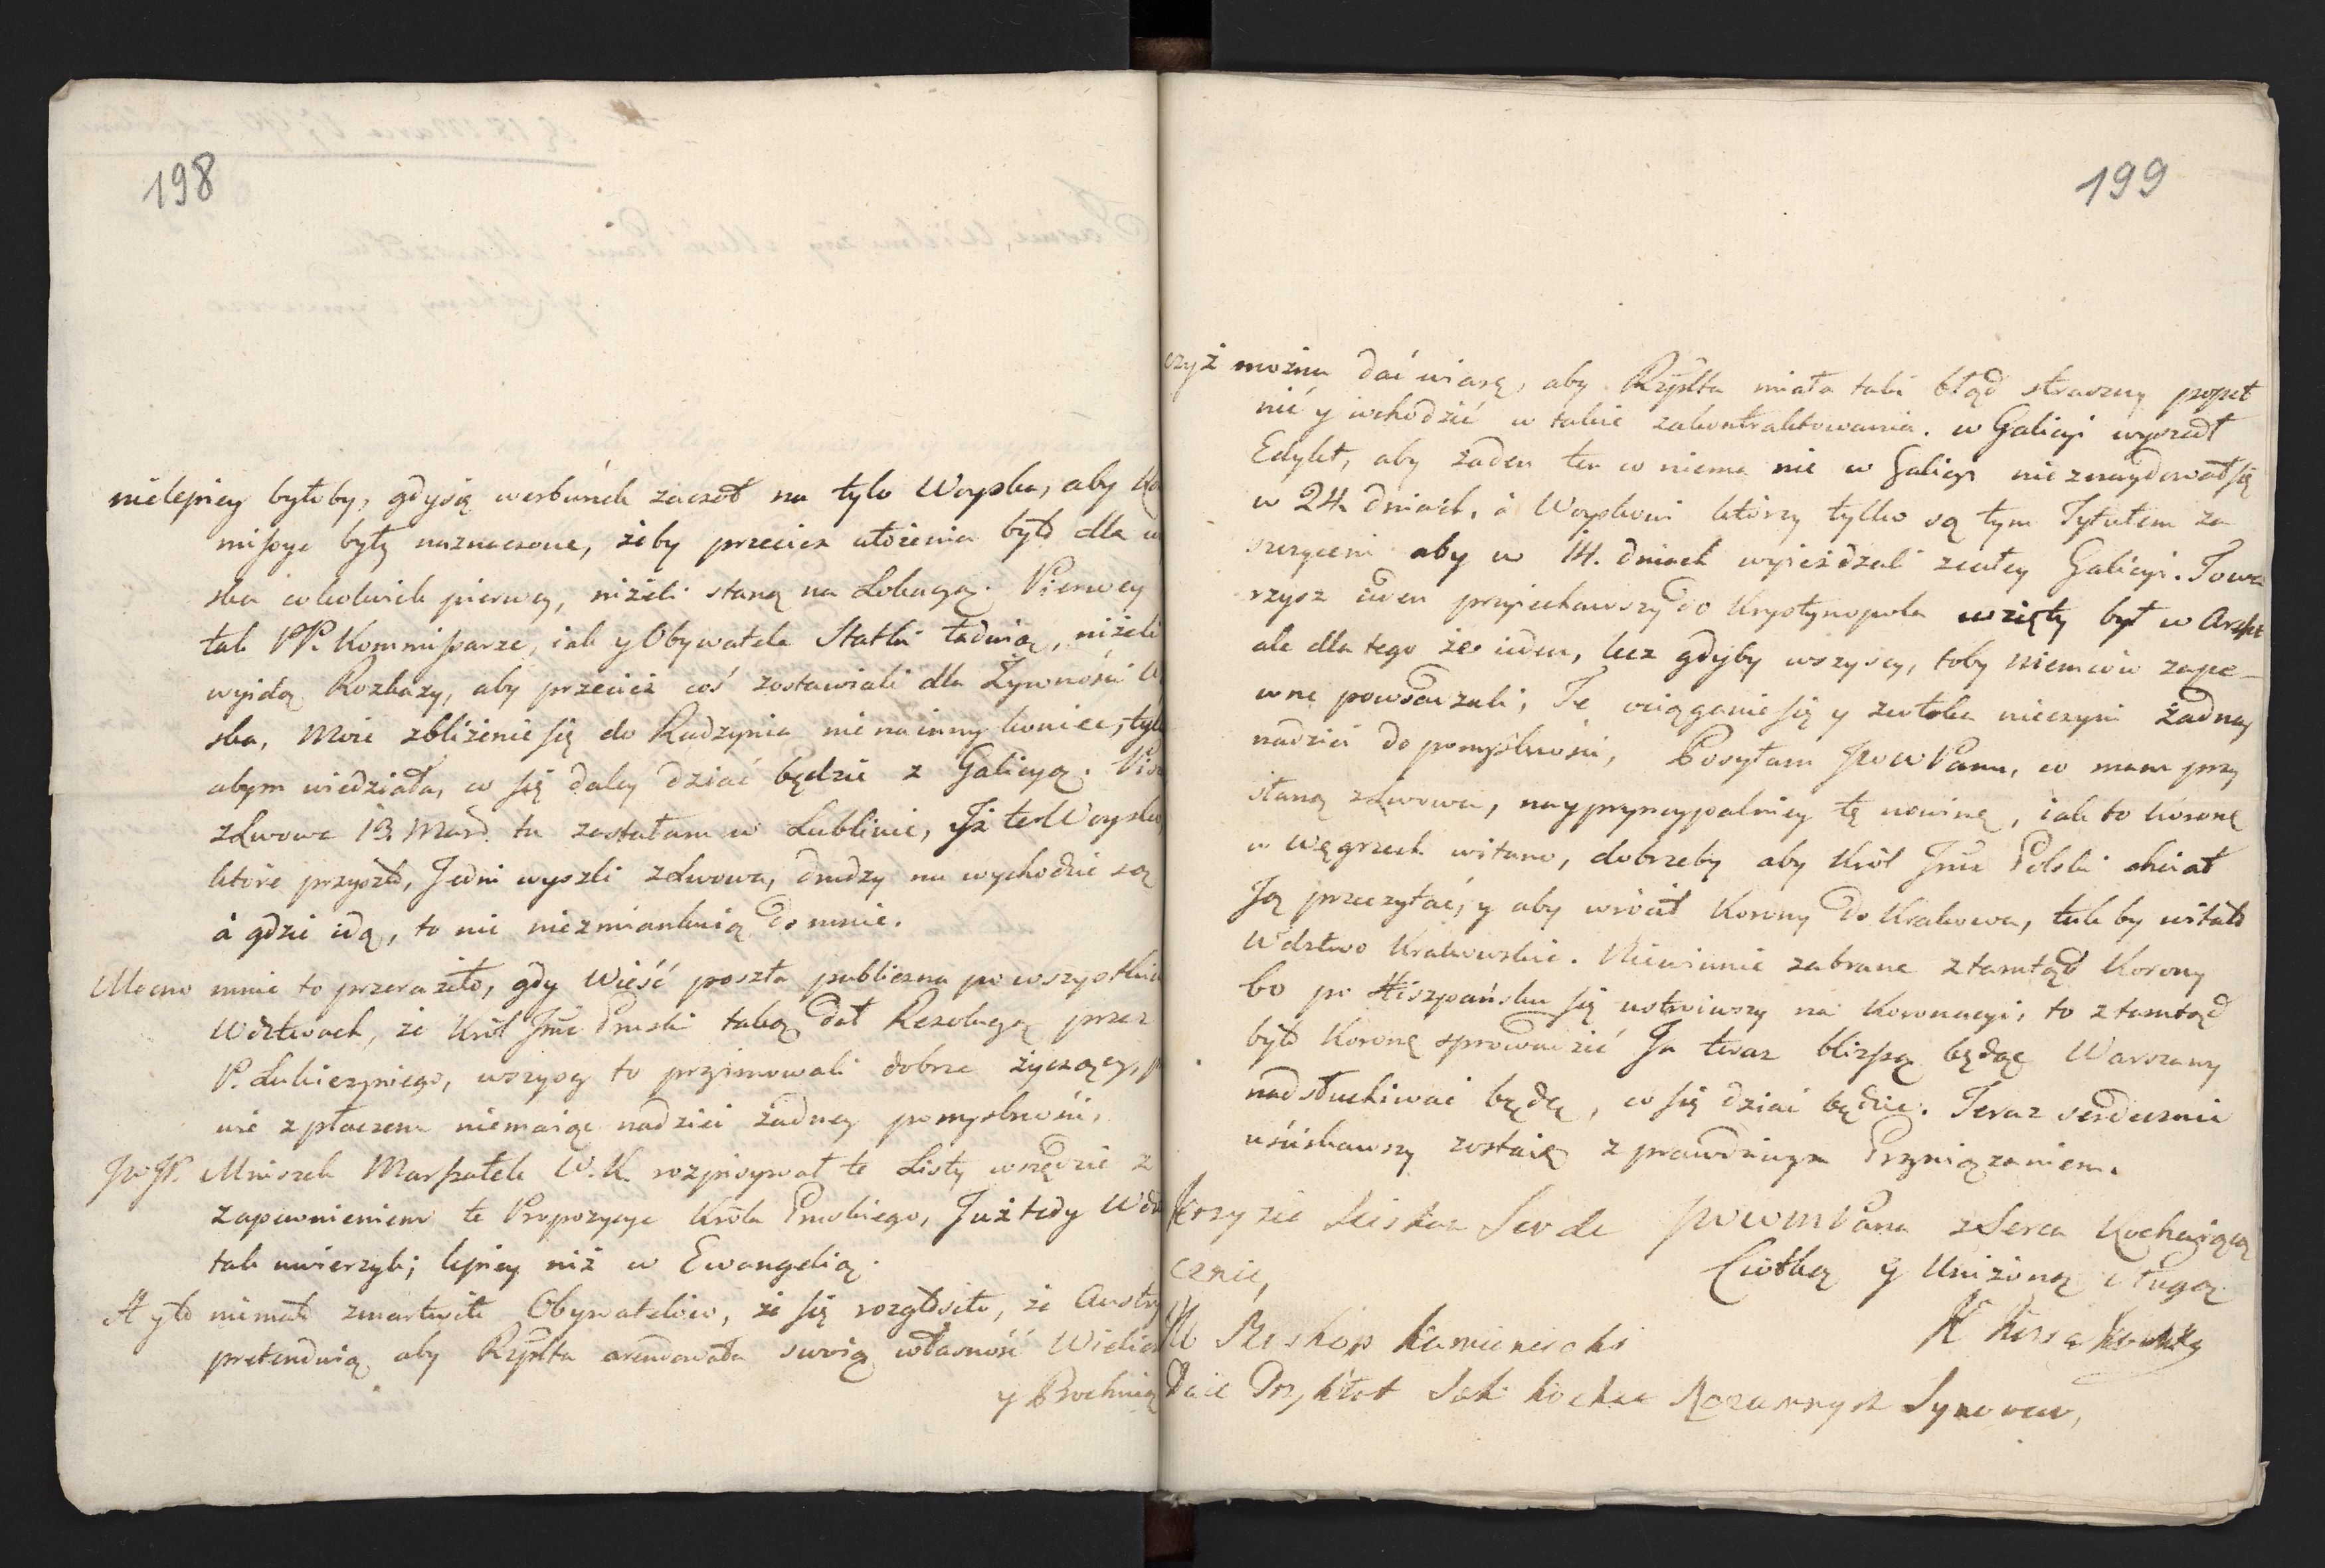 198
nielepiey byłoby, gdysię werbunek zaczoł na tylo Woyska, aby Ko
missye były naznaczone, żeby przeciez ułożenia było dla w
ska cokolwiek pierwey, niżeli staną na Lokacyą. Pierwey
tak PP. Kommissarze, iak y Obywatele Statki ładuią, niżeli
wyidą Rozkazy, aby przeciez coś zostawiali dla Żywności W
ska, Moie zbliżenie się do Radzynia nie na inny koniec, tylk
abym wiedziała, co się daley dziać będzie z Galicyą.
z Lwowa 13. Mar. tu zastałam w Lublinie, Iż też Woysko,
ktore przyszło, Jedni wyszli z Lwowa, drudzy na wychodzie są
à gdzie idą, to nie niezmiankuią do mnie.
Mocno mnie to przeraziło, gdy Wieść poszła publiczna po wszystkich
Wdztwach, że Król Jmć Pruski taką dał Rezolucyą przez
P. Lukiezyniego, wszyscy to przyimowali dobrze życzący,
nie z płaczem niemaiąc nadziei żadney pomyslności,
Jw JP. Mniszek Marszałek W. K. rozpisywał te Listy wszędzie z
zapewnieniem te Propozycye Króla Pruskiego, Już tedy Wdz
tak uwierzyli; lepiey niż w Ewangelią.
A y to niemało zmartwiło Obywatelów, że się rozgłosiło, że Austry
pretenduią aby Rzplta arendowała swoią własność Wielicz
y Bochnią
199
czyż można dać wiarę, aby Rzplta miała taki błąd straszny popeł
nić y wchodzić w takie zakontraktowania. w Galicyi wyszedł
Edykt, aby żaden ten co niema nic w Galicyi nieznaydował się
w 24. dniach, à Woyskowi którzy tylko są tym Tytułem za
szczyceni aby w 14. dniach wyieżdzali z całey Galicyi. Towa
rzysz ieden przyiechawszy do Krystynopola wzięty był w Areszt
ale dla tego że ieden, lecz gdyby wszyscy, toby Niemców zape-
wne powsadzali; Te ociąganie się y zwłoka nieczyni żadney
nadziei do pomyslności, Posyłam JwwPanu, co mam przy
słaną z Lwowa, nayprzyncypalniey tę nowinę, iak to Koronę
w Węgrzech witano, dobrzeby aby Król Jmć Polski chciał
Ją przeczytać, y aby wrócił Korony do Krakowa, tak by witało
Wdztwo Krakowskie. Niewinnie zabrane ztamtąd Korony
bo po Hiszpańsku się ustroiwszy na Koronacyi, to z tamtąd
było Koronę sprowadzić Ja teraz bliszą będąc Warszawy
nadsłuchiwać będę, co się dziać będzie. Teraz serdecznie
uściskawszy zostaię z prawdziwym Przywiązaniem.
JwwmPana z Serca Kochaiącą
Ciotką y Uniżoną sługą
K Kossakowska
Jerzy zie sciskaz Serde
cznie,
X Biskop kamieniecki
Daie Przykłat Jak kochac Rozumnych Synowcow,